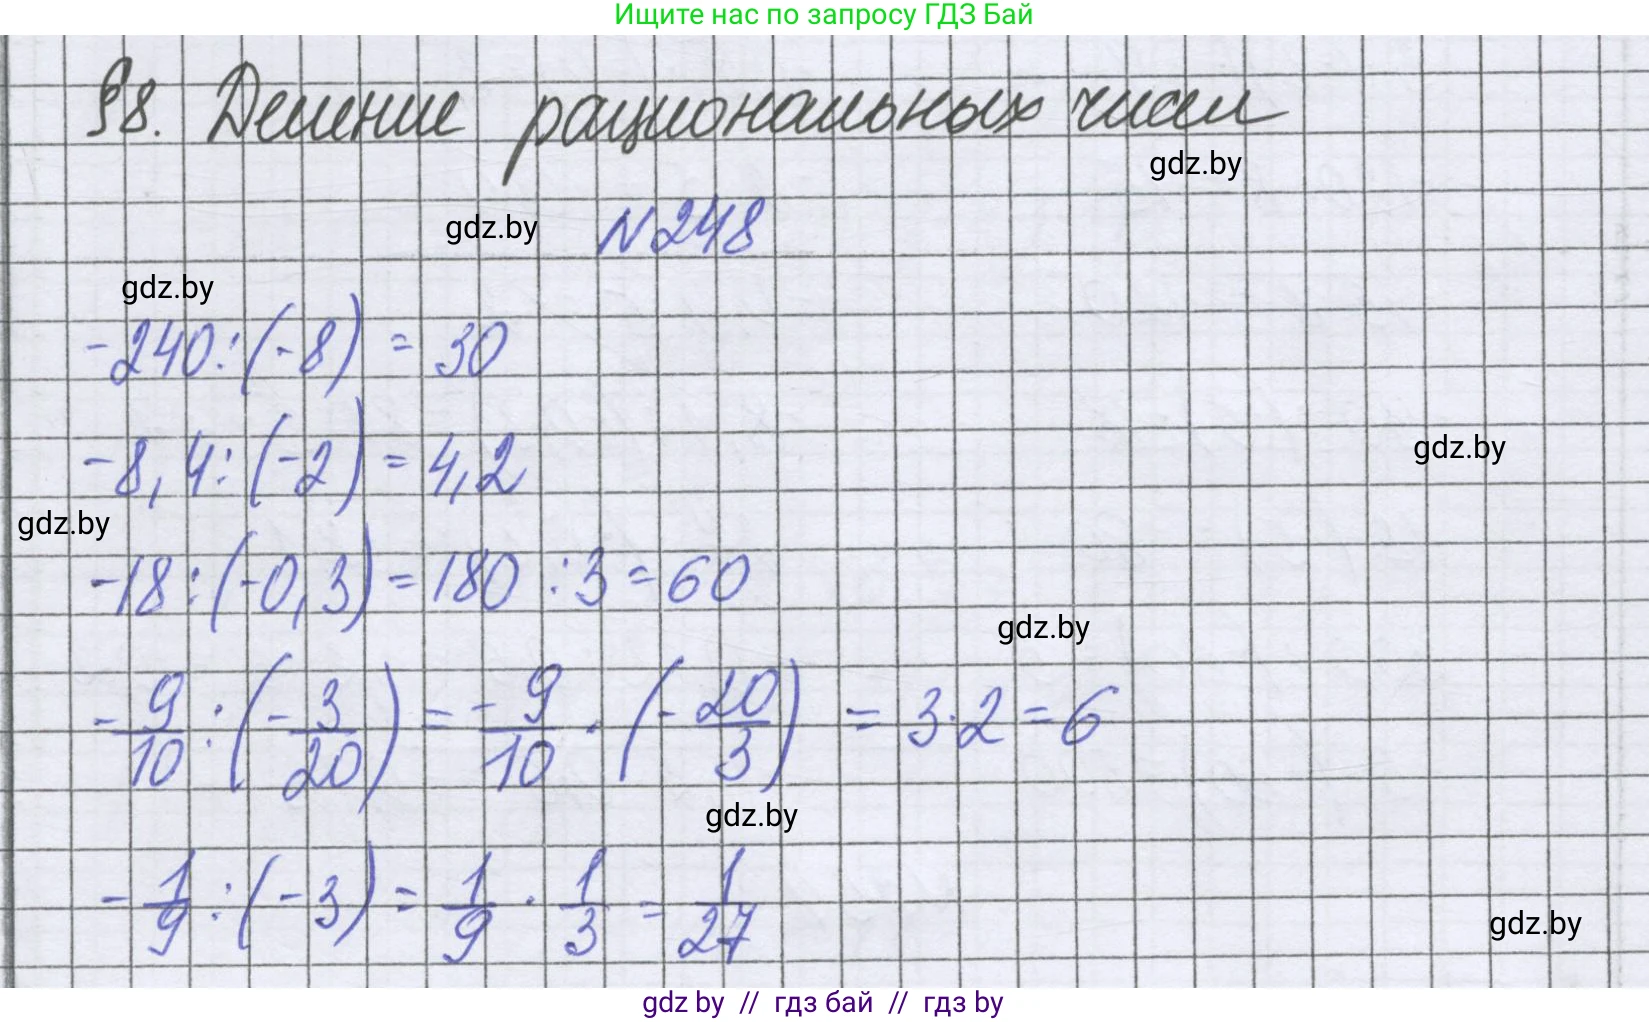 Ищите нас по запросу ГДЗ Бай
§8. Деление рациональных чисел
gdz.by
gdz.by N 248
gdz.by
-240:(-8) = 30
-8,4:(-2) = 4,2
gdz.by
gdz.by
-18:(-0,3) = 180:3 = 60
gdz.by
-9/10:(-3/20) = -9/10·(-20/3) = 3·2 = 6
gdz.by
-1/9:(-3) = 1/9·1/3 = 1/27
gdz.by
gdz by // гдз бай // гдз by